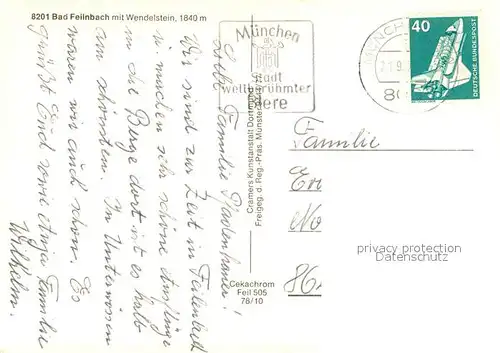 8201 Bad Feilnbach mit Wendelstein, 1840 m
Liebe Familie Pfadenhauer!
Wir sind zur Zeit in Feilenbach
u. machen sehr schöne Ausflüge
in die Berge dort ist es halt
am schönsten. In Unterwössen
waren wir auch schon. Es
grüßt Euch sowie Anja Familie
Wilhelm.
Cramers Kunstanstalt Dortmund
Freigeg. d. Reg.-Präs. Münster
Cekachrom
Feil 505
78/10
München
Stadt
weltberühmter
Biere
MÜNCH
21.9.
80
40
DEUTSCHE BUNDESPOST
Familie
No
86
privacy protection
Datenschutz